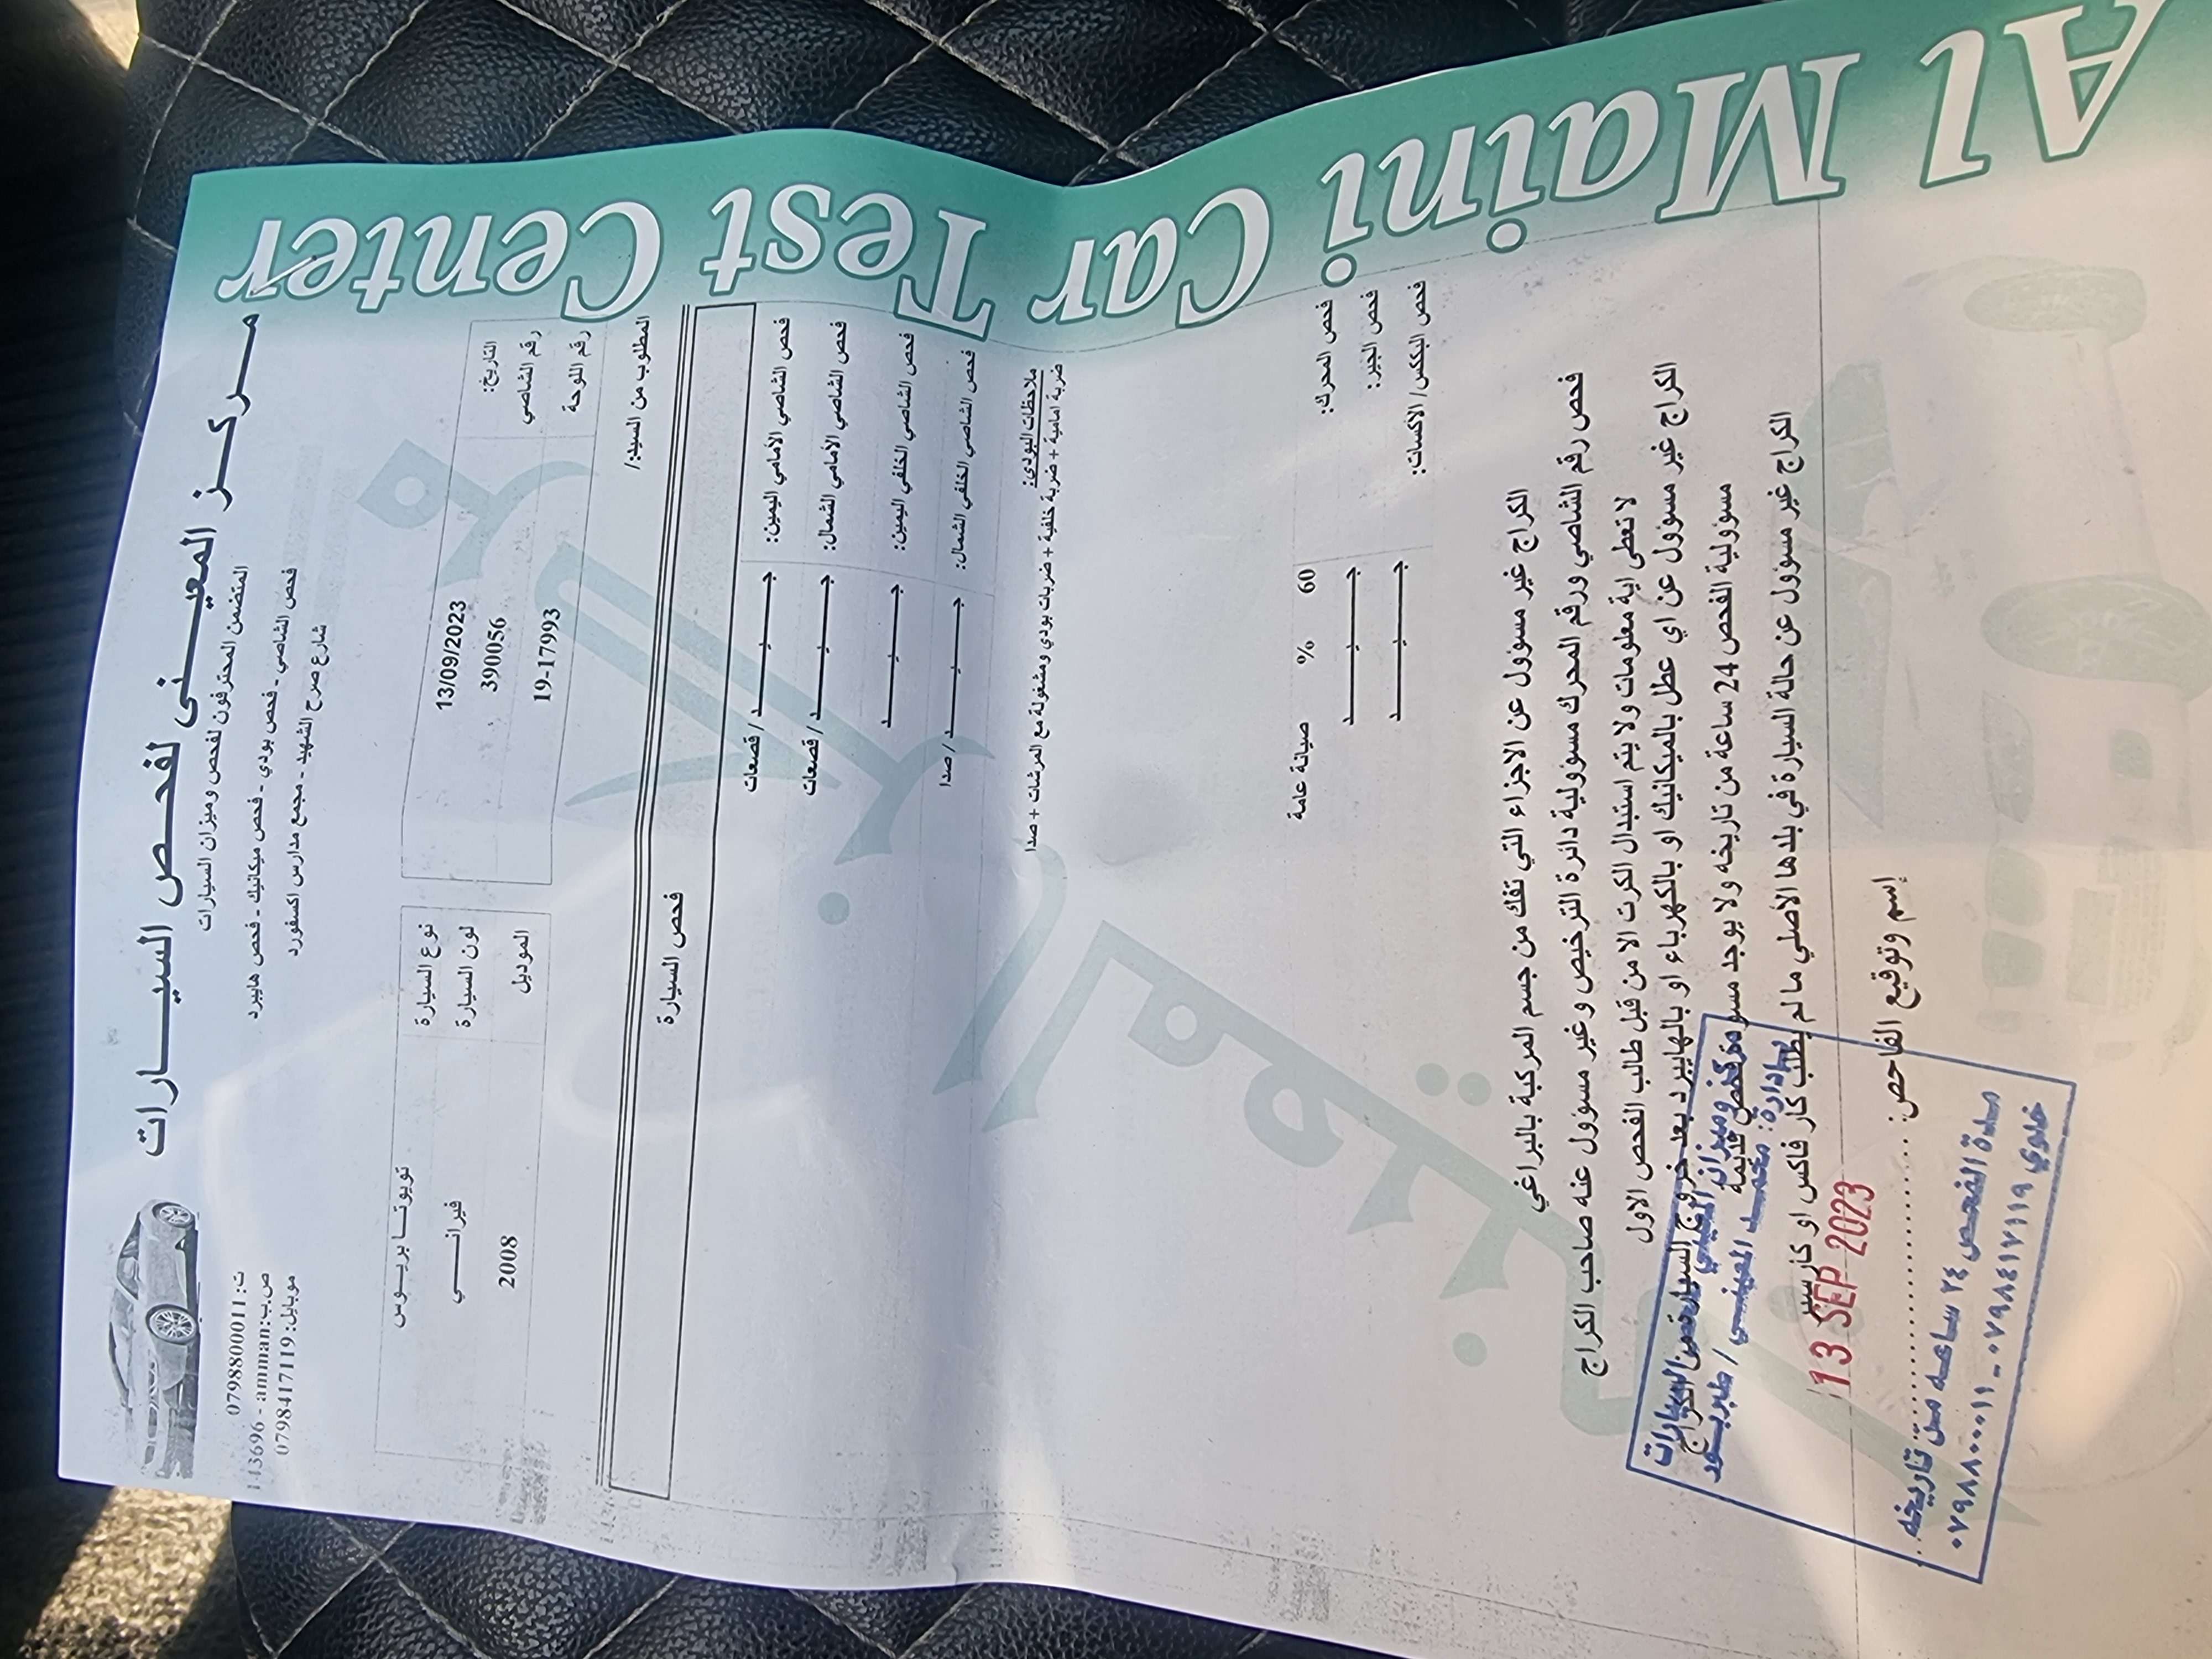 Al Maini Car Test Center
مـــركـــز المعيـــنى لفحـــص السيـــارات
المتضمن المحترفون لفحص وميزان السيارات
فحص الشاصي - فحص بودي - فحص ميكانيك - فحص هايبرد
شارع صرح الشهيد - مجمع مدارس اكسفورد
ت: 0798800011
ص.ب: 143696 - amman
موبايل: 0798417119
التاريخ: 13/09/2023
رقم الشاصي 390056
رقم اللوحة 19-17993
نوع السيارة تويوتا بريوس
لون السيارة فيرانـــي
الموديل 2008
المطلوب من السيد:/
فحص السيارة
فحص الشاصي الأمامي اليمين: جـــيـــد / قصعات
فحص الشاصي الأمامي الشمال: جـــيـــد / قصعات
فحص الشاصي الخلفي اليمين: جـــيـــد
فحص الشاصي الخلفي الشمال: جـــيـــد / صدا
ملاحظات البودي:
ضربة امامية + ضربة خلفية + ضربات بودي ومشغولة مع المرشات + صدا
فحص المحرك: 60 % صيانة عامة
فحص الجير: جـــيـــد
فحص البكس / الاكسات: جـــيـــد
الكراج غير مسؤول عن الاجزاء التي تفك من جسم المركبة بالبراغي
فحص رقم الشاصي ورقم المحرك مسؤولية دائرة الترخيص وغير مسؤول عنه صاحب الكراج
لا تعطى اية معلومات ولا يتم استبدال الكرت الا من قبل طالب الفحص الاول
الكراج غير مسؤول عن اي عطل بالميكانيك او بالكهرباء او بالهايبرد بعد خروج السيارة من الكراج
مسؤولية الفحص 24 ساعة من تاريخه ولا يوجد مسؤولية فحص قديمة
الكراج غير مسؤول عن حالة السيارة في بلدها الأصلي ما لم يطلب كار فاكس او كارسير
إسم وتوقيع الفاحص:
مركز وميزان المعيني لفحص السيارات
بإدارة: محمد المعيني / طبربور
13 SEP 2023
مدة الفحص ٢٤ ساعه من تاريخه
خلوي ٠٧٩٨٤١٧١١٩ - ٠٧٩٨٨٠٠٠١١
مركز المعيني